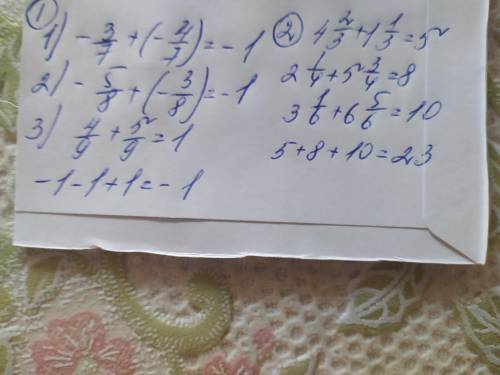 ①
1) -3/7 + (-4/7) = -1
2) -5/8 + (-3/8) = -1
3) 4/9 + 5/9 = 1
-1-1+1=-1
② 4 2/3 + 1 1/3 = 5
2 1/4 + 5 3/4 = 8
3 1/6 + 6 5/6 = 10
5+8+10=23